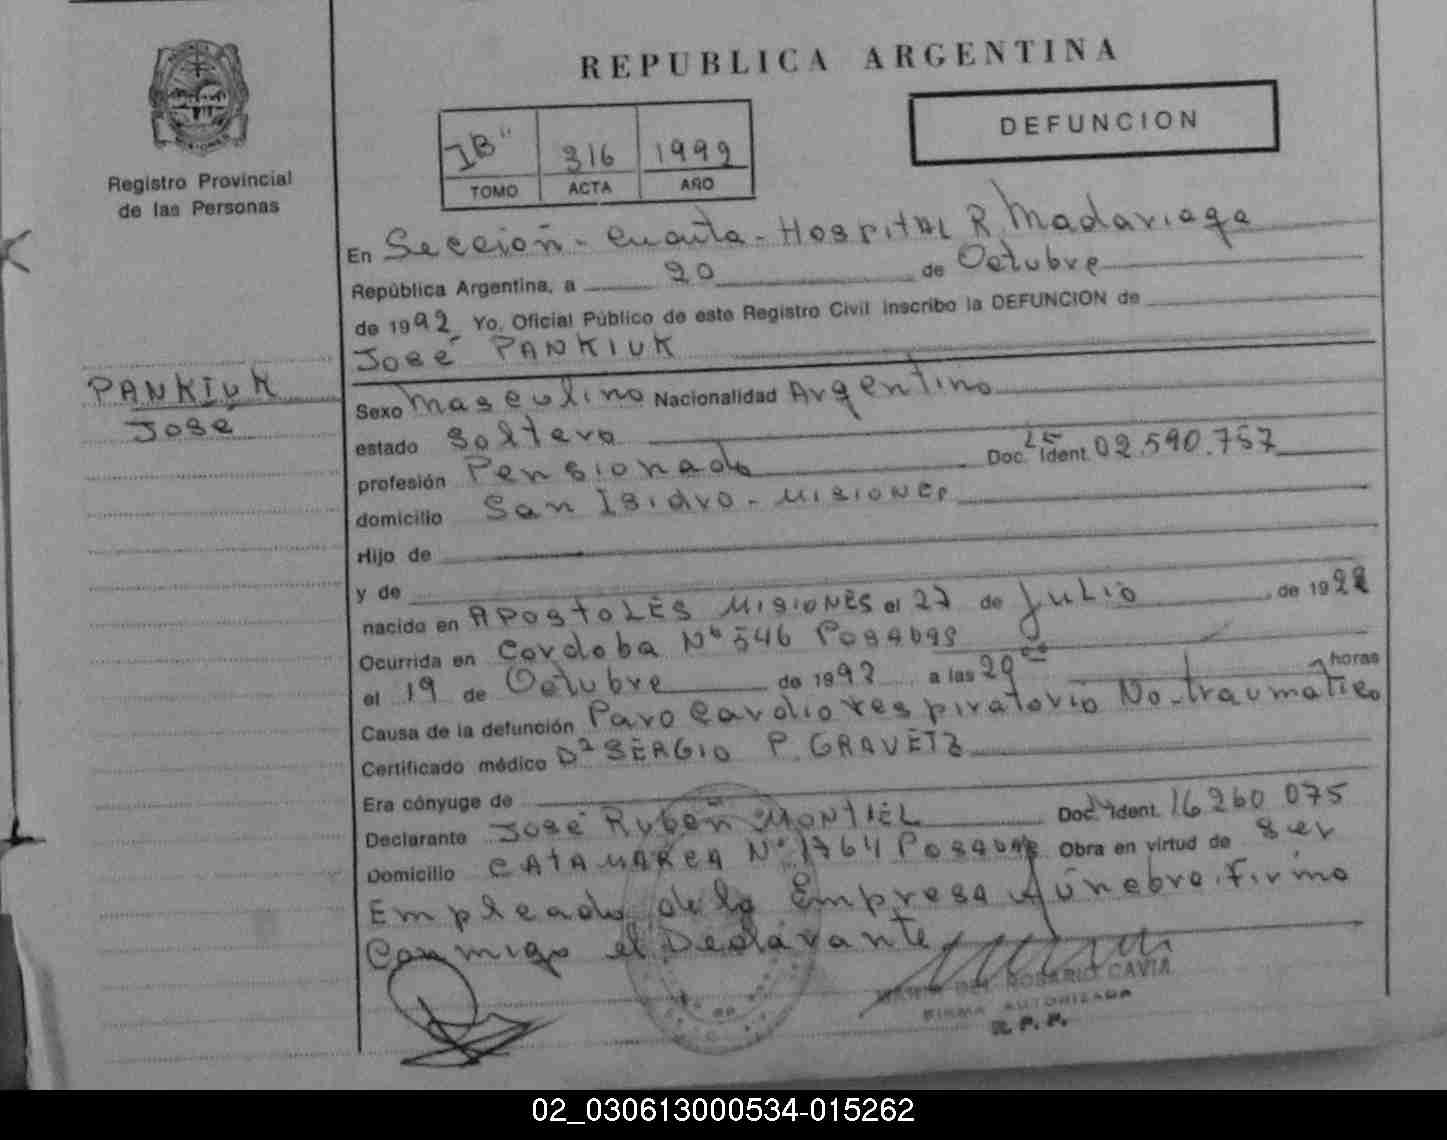 REPUBLICA ARGENTINA
DEFUNCION
Registro Provincial
de las Personas
316 1992
TOMO ACTA AÑO
En Sección - Cuarta - Hospital R. Madariaga
República Argentina, a 20 de Octubre
de 1992 Yo, Oficial Público de este Registro Civil inscribo la DEFUNCION de
José PANKIUK
PANKIUK
José
Sexo Masculino Nacionalidad Argentino
estado Soltero
profesión Pensionado Doc. Ident. 02.590.757
domicilio San Isidro - Misiones
Hijo de
y de
nacido en APOSTOLES MISIONES el 27 de Julio de 19
Ocurrida en Cordoba Nº 546 Posadas
el 19 de Octubre de 1992 a las 20 horas
Causa de la defunción Paro Cardiorespiratorio No-traumatico
Certificado médico Dr SERGIO P. GRAVETZ
Era cónyuge de
Declarante José Rubén MONTIEL Doc. Ident. 16260 075
Domicilio CATAMARCA Nº 1764 Posadas Obra en virtud de ser
Empleado de la Empresa Fúnebre. Firma
Conmigo el Declarante
MARIA DEL ROSARIO CAVIA
FIRMA AUTORIZADA
R. P. P.
02_030613000534-015262